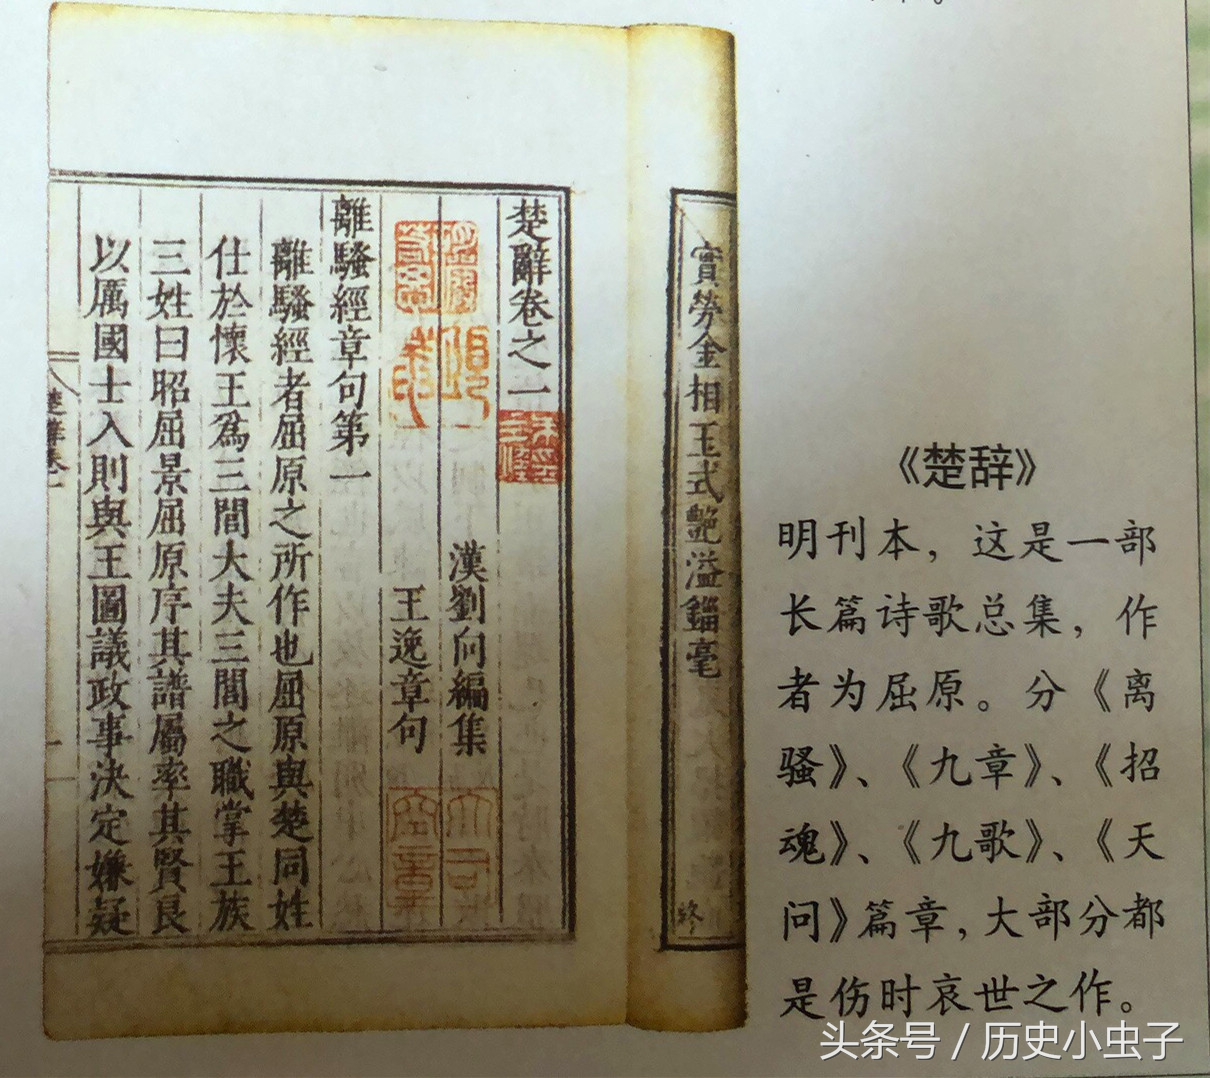 楚辭卷之一
漢劉向編集
王逸章句
離騷經章句第一
離騷經者屈原之所作也屈原與楚同姓
仕於懷王為三閭大夫三閭之職掌王族
三姓曰昭屈景屈原序其譜屬率其賢良
以厲國士入則與王圖議政事決定嫌疑
金相玉式艷溢錙毫
終
《楚辞》
明刊本，这是一部
长篇诗歌总集，作
者为屈原。分《离
骚》、《九章》、《招
魂》、《九歌》、《天
问》篇章，大部分都
是伤时哀世之作。
头条号 / 历史小虫子